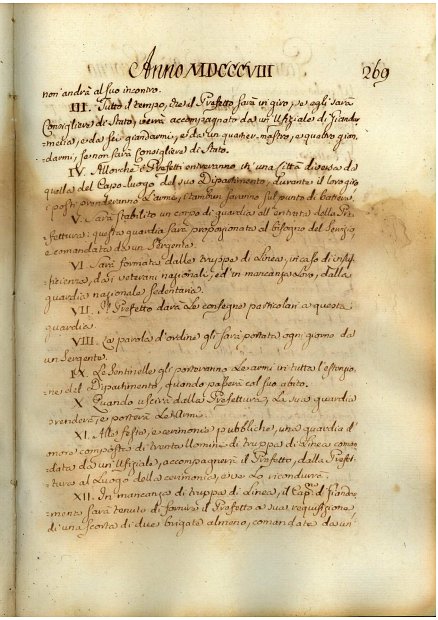 Anno MDCCCVIII 269
non' andrà al suo incontro.
III. Tutto il tempo, che il Prefetto sarà in giro, se egli sarà
Consigliere di Stato, verrà accompagnato da un' Ufiziale di Gianda-
meria, e da sei giandarmi, e da un quartier-mastro, e quattro gian-
darmi, se non sarà Consigliere di Stato.
IV. Allorchè i Prefetti entreranno in' una Città diversa da
quella del Capo-luogo del suo Dipartimento, durante il loro giro
i posti prenderanno l'armi, i tamburi saranno sul punto di battere.
V. Sarà stabilito un corpo di guardia all'entrata della Pre-
fettura: questa guardia sarà proporzionata al bisogno del servizio,
e comandata da un Sergente.
VI. Sarà formata dalle truppe di Linea, in caso di insuf-
ficienza, dai veterani nazionali, ed' in mancanza loro, dalla
guardia nazionale sedentaria.
VII. Il Prefetto darà le consegne particolari a questa
guardia.
VIII. La parola d'ordine gli sarà portata ogni giorno da
un Sergente.
IX. Le Sentinelle gli porteranno le armi in tutta l'estensio-
ne del Dipartimento, quando passerà col suo abito.
X. Quando uscirà dalla Prefettura, la sua guardia
prenderà, e porterà le Armi.
XI. Alle feste, e cerimonie pubbliche, una guardia d'
onore composta di trenta uomini di truppa di Linea coman-
data da un' Ufiziale, accompagnerà il Prefetto, dalla Prefet-
tura al Luogo della cerimonia, e ve lo ricondurrà.
XII. In mancanza di truppa di Linea, il Capo. di Giandar-
meria sarà tenuto di fornire il Prefetto a sua requisizione
di una scorta di due brigate almeno, comandate da un'